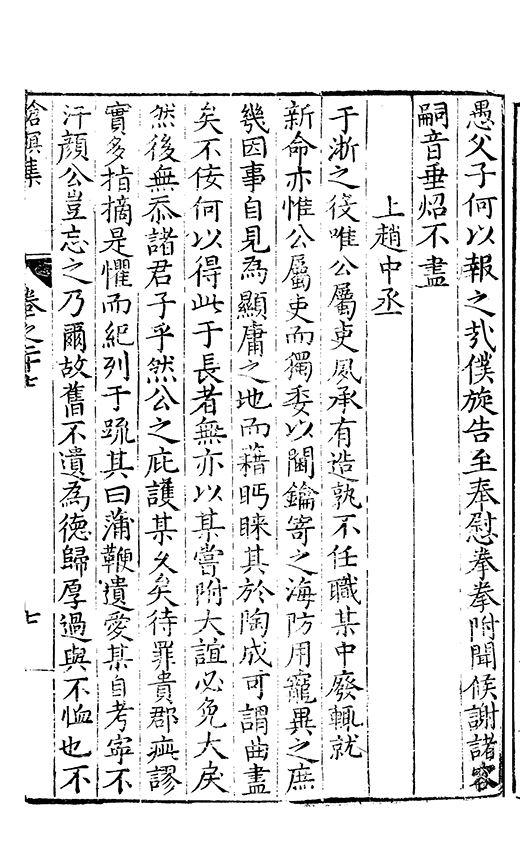 愚父子何以報之哉僕旋告至奉慰拳拳附聞候謝諸容
嗣音垂炤不盡
上趙中丞
于淅之役唯公屬吏夙承有造孰不任職某中廢輒就
新命亦惟公屬吏而獨委以閫鑰寄之海防用寵異之庶
幾因事自見為顯庸之地而藉眄睞其於陶成可謂曲盡
矣不佞何以得此于長者無亦以某嘗附大誼必免大戾
然後無忝諸君子乎然公之庇護某久矣待罪貴郡疵謬
實多指摘是懼而紀列于疏其曰蒲鞭遺愛某自考寧不
汗顏公豈忘之乃爾故舊不遺為德歸厚過與不恤也不
滄溟集
卷之二十七
七